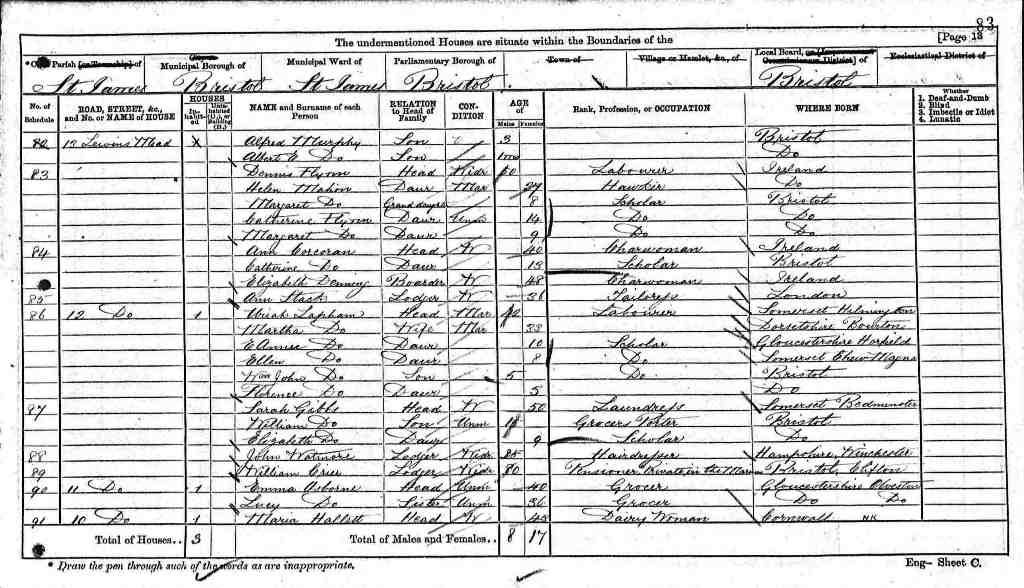 83
[Page 18
The undermentioned Houses are situate within the Boundaries of the
Parish [or Township] of Municipal Borough of Municipal Ward of Parliamentary Borough of Town of Village or Hamlet, &c., of Local Board, or [Improvement Commissioners District] of Ecclesiastical District of
St. James Bristol St. James Bristol Bristol
No. of Schedule ROAD, STREET, &c., and No. or NAME of HOUSE HOUSES Inhabited Uninhabited (U.), or Building (B.) NAME and Surname of each Person RELATION to Head of Family CONDITION AGE Males Females Rank, Profession, or OCCUPATION WHERE BORN Whether 1. Deaf-and-Dumb 2. Blind 3. Imbecile or Idiot 4. Lunatic
82 13 Lewins Mead X Alfred Murphy Son 3 Bristol
Albert E Do Son Do
83 Dennis Flynn Head Widr 50 Labourer Ireland
Helen Mahon Daur Mar 27 Hawker Do
Margaret Do 8 Scholar Bristol
Catherine Flynn Daur Unm 14 Do Do
Margaret Do Daur 9 Do Do
84 Ann Corcoran Head W 40 Charwoman Ireland
Catherine Do Daur 13 Scholar Bristol
Elizabeth Boarder W 48 Charwoman Ireland
85 Ann Lodger W 36 Tailoress London
86 12 Do 1 Uriah Lapham Head Mar 42 Labourer Somerset
Martha Do Wife Mar 33 Dorsetshire Bourton
Do Daur 10 Scholar Gloucestershire Horfield
Ellen Do Daur 8 Do Somerset
Wm John Do Son 5 Do Bristol
Florence Do Daur 5 Do
87 Sarah Gibbs Head W 50 Laundress Somerset Bedminster
William Do Son Unm 18 Grocers Porter Bristol
Elizabeth Do Daur 9 Scholar Do
88 John Lodger Widr Hairdresser Hampshire, Winchester
89 William Lodger Widr 80 Pensioner Private in the Marines Bristol, Clifton
90 11 Do 1 Emma Osborne Head Unm 40 Grocer Gloucestershire Olveston
Lucy Do Sister Unm 36 Grocer Do Do
91 10 Do 1 Maria Hallett Head W Dairy Woman Cornwall NK
Total of Houses.. 3 Total of Males and Females.. 8 17
* Draw the pen through such of the words as are inappropriate. Eng– Sheet C.